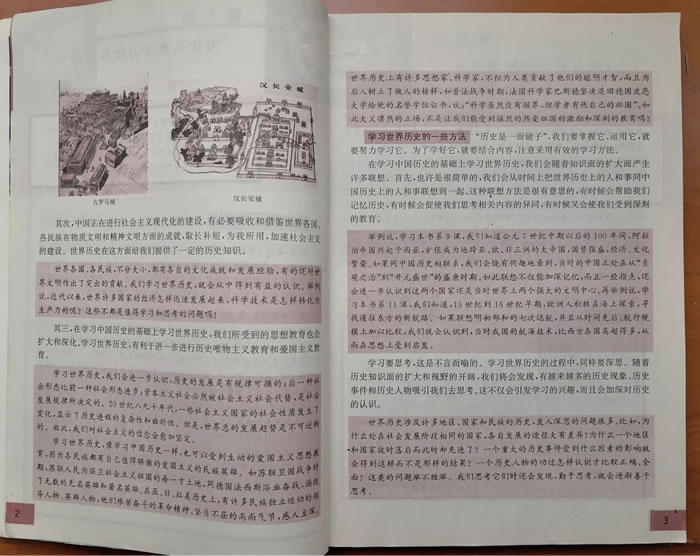 汉长安城
古罗马城
汉长安城
其次,中国正在进行社会主义现代化的建设,有必要吸收和借鉴世界各国、
各民族在物质文明和精神文明方面的成就,取长补短,为我所用,加速社会主义
的建设。世界历史在这方面给我们提供了一定的历史知识。
世界各国、各民族,不分大小,都有各自的文化成就和发展经验,有的还对世
界文明作出了突出的贡献。我们学习世界历史,就会从中得到有益的认识。举例
说,近代以来,世界许多国家的经济怎样迅速发展起来,科学技术是怎样转化为
生产力的呢?这些不都是值得学习和思考的问题吗?
其三,在学习中国历史的基础上学习世界历史,我们所受到的思想教育也会
扩大和深化。学习世界历史,有利于进一步进行历史唯物主义教育和爱国主义教
育。
学习世界历史,我们会进一步认识,历史的发展是有规律可循的;后一种社
会形态比前一种社会形态进步;资本主义社会必然被社会主义社会代替,是社会
发展规律所决定的。20世纪八九十年代,一些社会主义国家的社会性质发生了
变化,显示了历史进程的复杂性和曲折性。但是,世界总的发展趋势是不可逆转
的。因此,我们对社会主义的信念会愈加坚定。
学习世界历史,像学习中国历史一样,也可以受到生动的爱国主义思想教
育,因为各民族都有自己值得骄傲的爱国主义的民族英雄。如苏联卫国战争时
期,苏联人民为保卫社会主义祖国的每一寸土地,同德国法西斯浴血奋战,涌现
了无数的无名英雄和著名英雄。在亚、非、拉美历史上,有许多民族独立运动的领
导人物、英雄人物,他们艰苦奋斗的革命精神、坚贞不屈的高尚气节,感人至深。
2
世界历史上有许多思想家、科学家,不但为人类贡献了他们的聪明才智,而且为
后人树立了做人的榜样,如普法战争时期,法国科学家巴斯德坚决退回德国波恩
大学给他的名誉学位证书,说:“科学虽然没有国界,但学者有他自己的祖国”。如
此大义凛然的立场,不是让我们能受到强烈的热爱祖国的激励和深刻的教育吗?
学习世界历史的一些方法 “历史是一面镜子”,我们要掌握它、运用它,就
要努力学习它。为了学好它,就要结合内容,注意采用有效的学习方法。
在学习中国历史的基础上学习世界历史,我们会随着知识面的扩大而产生
许多联想。首先,也许是很简单的,我们会从时间上把世界历史上的人和事同中
国历史上的人和事联想到一起。这种联想方法是很有意思的,有时候会帮助我们
记忆历史,有时候会促使我们思考相关内容的异同,有时候又会使我们受到深刻
的教育。
举例说,学习本书第9课,我们知道公元7世纪中期以后的100年间,阿拉
伯帝国兴起于西亚,扩张成为地跨亚、欧、非三洲的大帝国,国势强盛,经济、文化
繁荣。如果同中国历史相联系,我们会饶有兴趣地看到,当时的中国正处在从“贞
观之治”到“开元盛世”的盛唐时期。如此联想不仅能加深记忆,而且一经指点,还
会进一步认识到这两个国家还是当时世界上两个强大的文明中心。再举例说,学
习本书第11课,我们知道,15世纪到16世纪早期,欧洲人积极在海上探索,寻
找通往东方的新航路。如果联想明初郑和的七次远航,并且从时间先后、航行规
模上加以比较,我们就会认识到,当时我国的航海技术,比西方各国高超得多,从
而在思想上受到启发。
学习要思考,这是不言而喻的。学习世界历史的过程中,同样要深思。随着
历史知识面的扩大和视野的开阔,我们将会发现,有越来越多的历史现象、历史
事件和历史人物吸引我们去思考。这不仅会引发学习的兴趣,而且会加深对历史
的认识。
世界历史涉及许多地区、国家和民族的历史,发人深思的问题很多,比如,为
什么处在社会发展阶段相同的国家,各自发展的途径大有差异?为什么一个地区
和国家彼时落后而此时却先进了?一个重大的历史事件受到什么因素的影响就
会得到这样而不是那样的结果?一个历史人物的功过怎样认识才比较正确、全
面?这类的问题举不胜举。我们思考它们时还会发现,勤于思考,就会逐渐善于
思考。
3